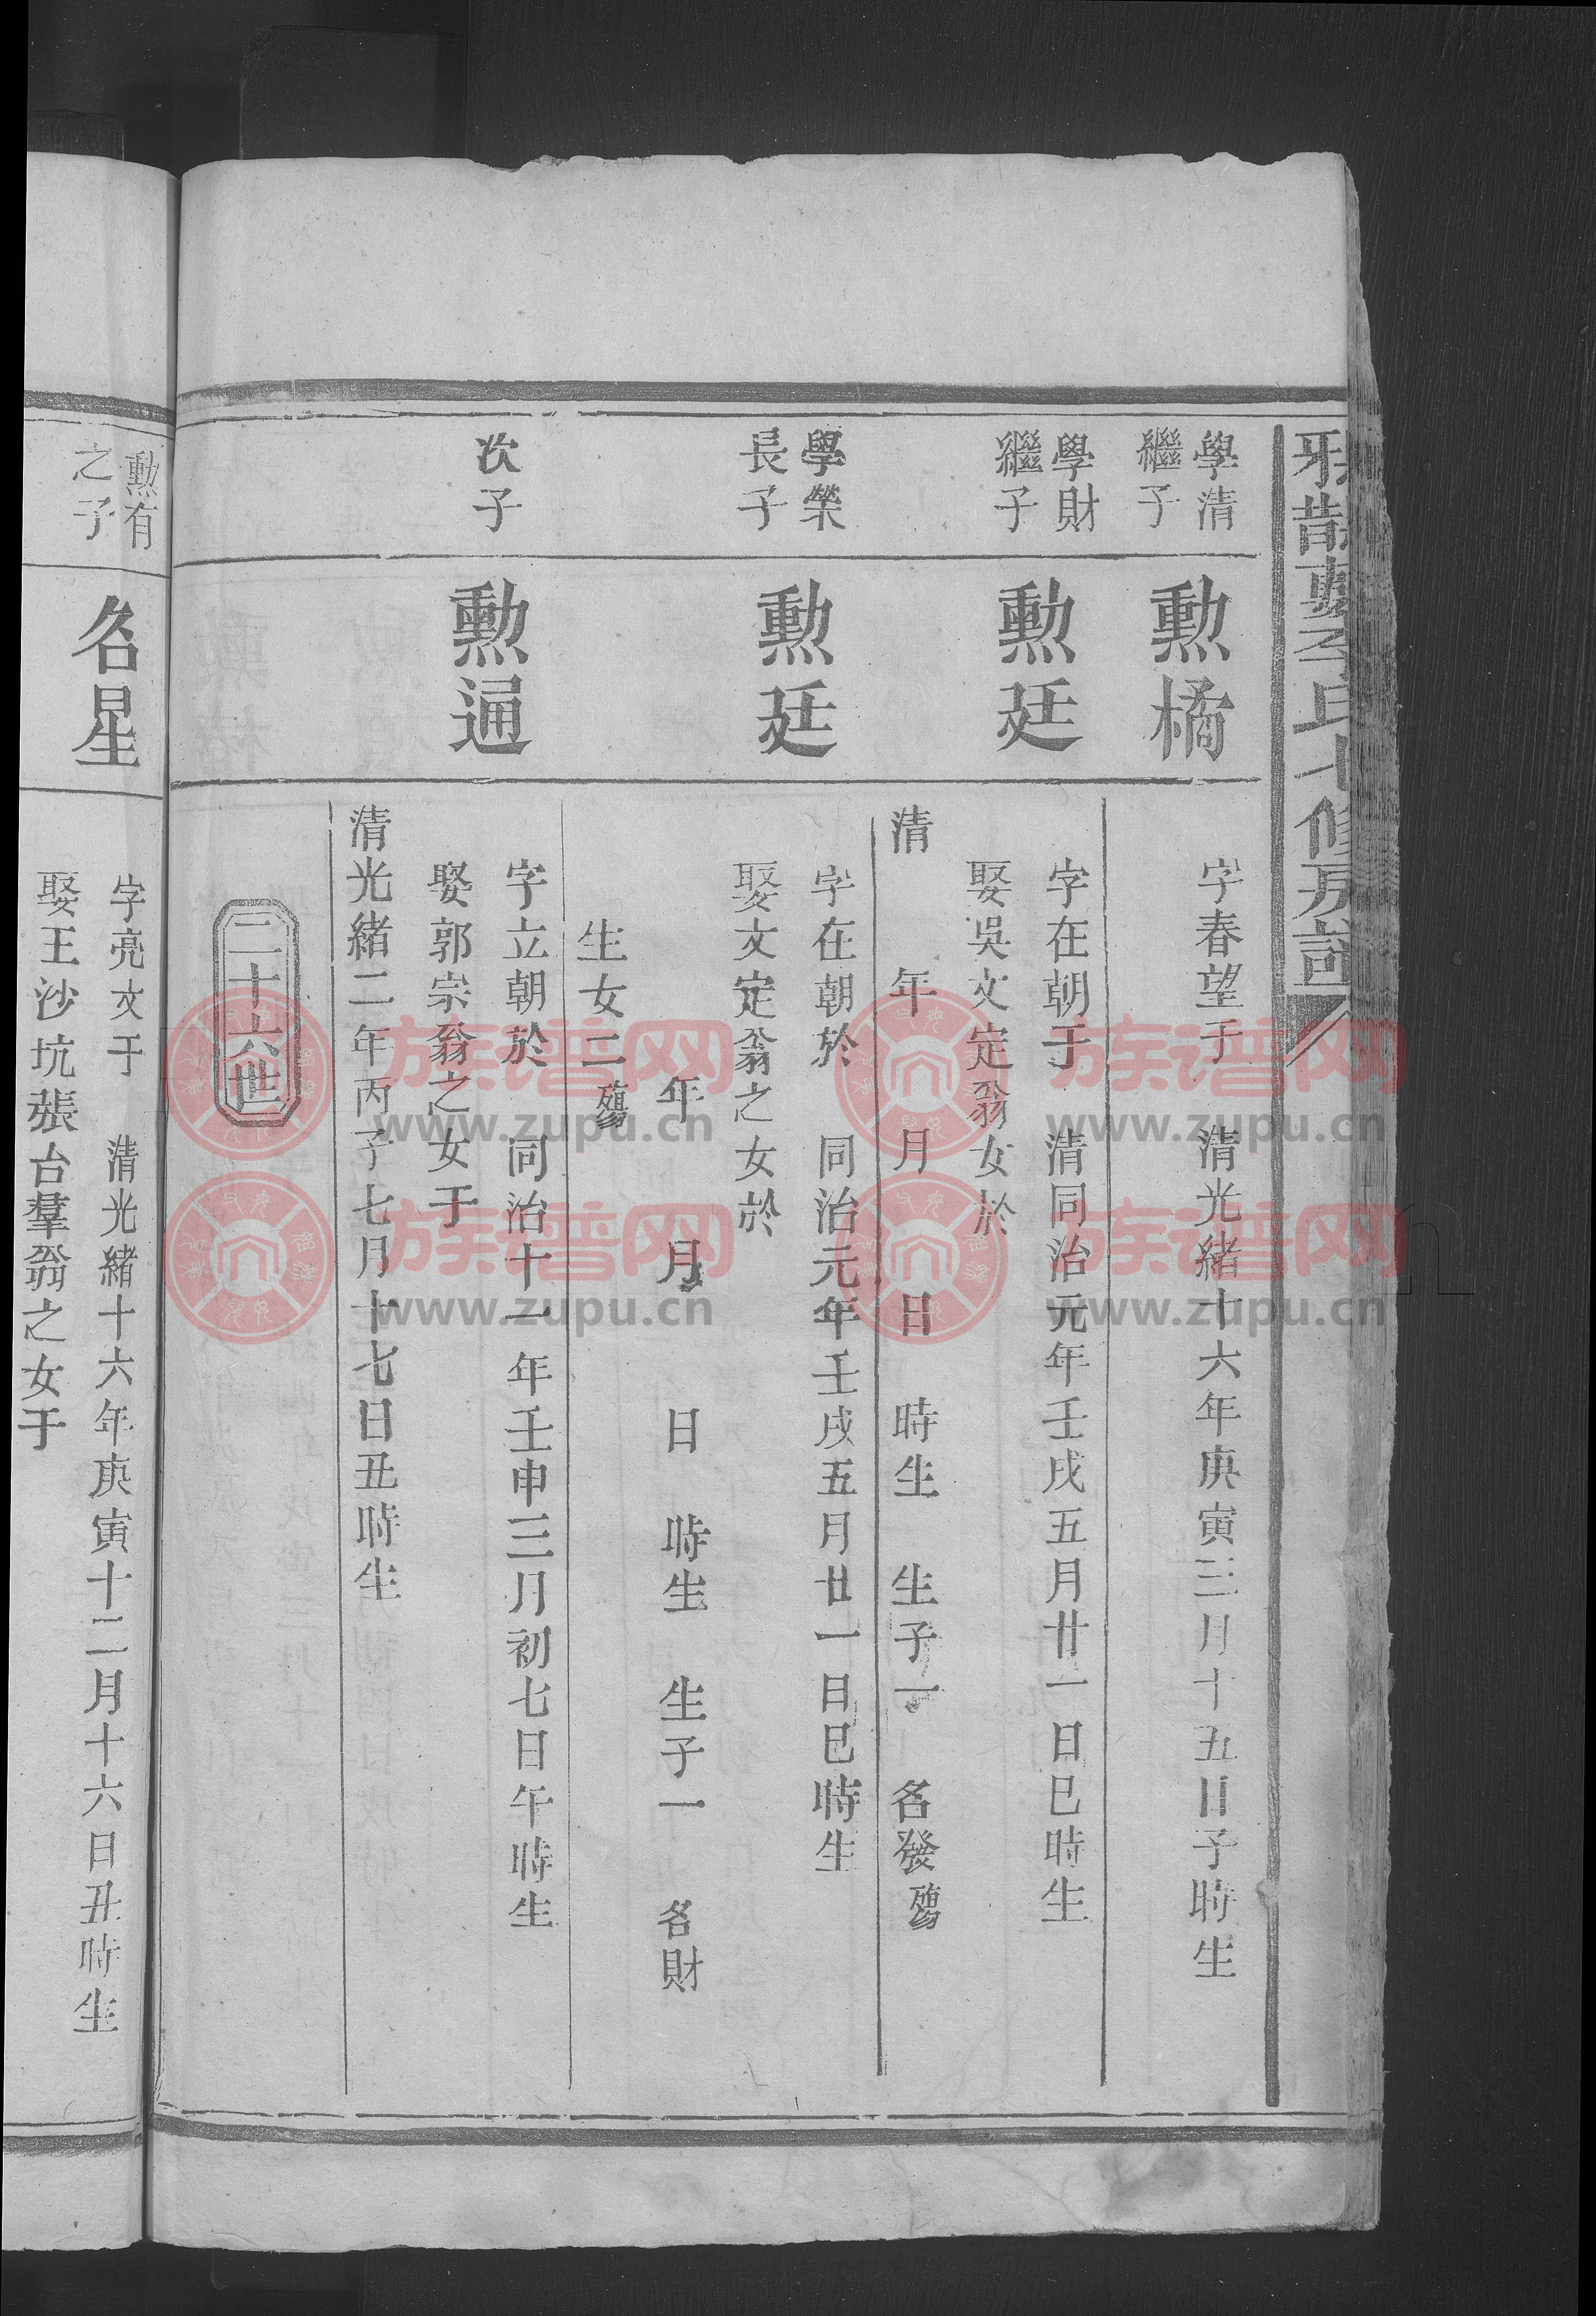 李氏七修房譜
學清
繼子
勲橘
字春望于　清光緒十六年庚寅三月十五日子時生
學財
繼子
勲廷
字在朝于　清同治元年壬戌五月廿一日巳時生
娶吳文定翁女於
清　年　月　日　時生　生子一　名發殤
學榮
長子
勲廷
字在朝於　同治元年壬戌五月廿一日巳時生
娶文定翁之女於
年　月　日　時生　生子一　名財
生女二殤
次子
勲通
字立朝於　同治十一年壬申三月初七日午時生
娶郭宗翁之女于
清光緒二年丙子七月十七日丑時生
二十六世
勲有
之子
名星
字亮文于　清光緒十六年庚寅十二月十六日丑時生
娶王沙坑張台羣翁之女于
族谱网
www.zupu.cn
族谱网
www.zupu.cn
族谱网
www.zupu.cn
族谱网
www.zupu.cn